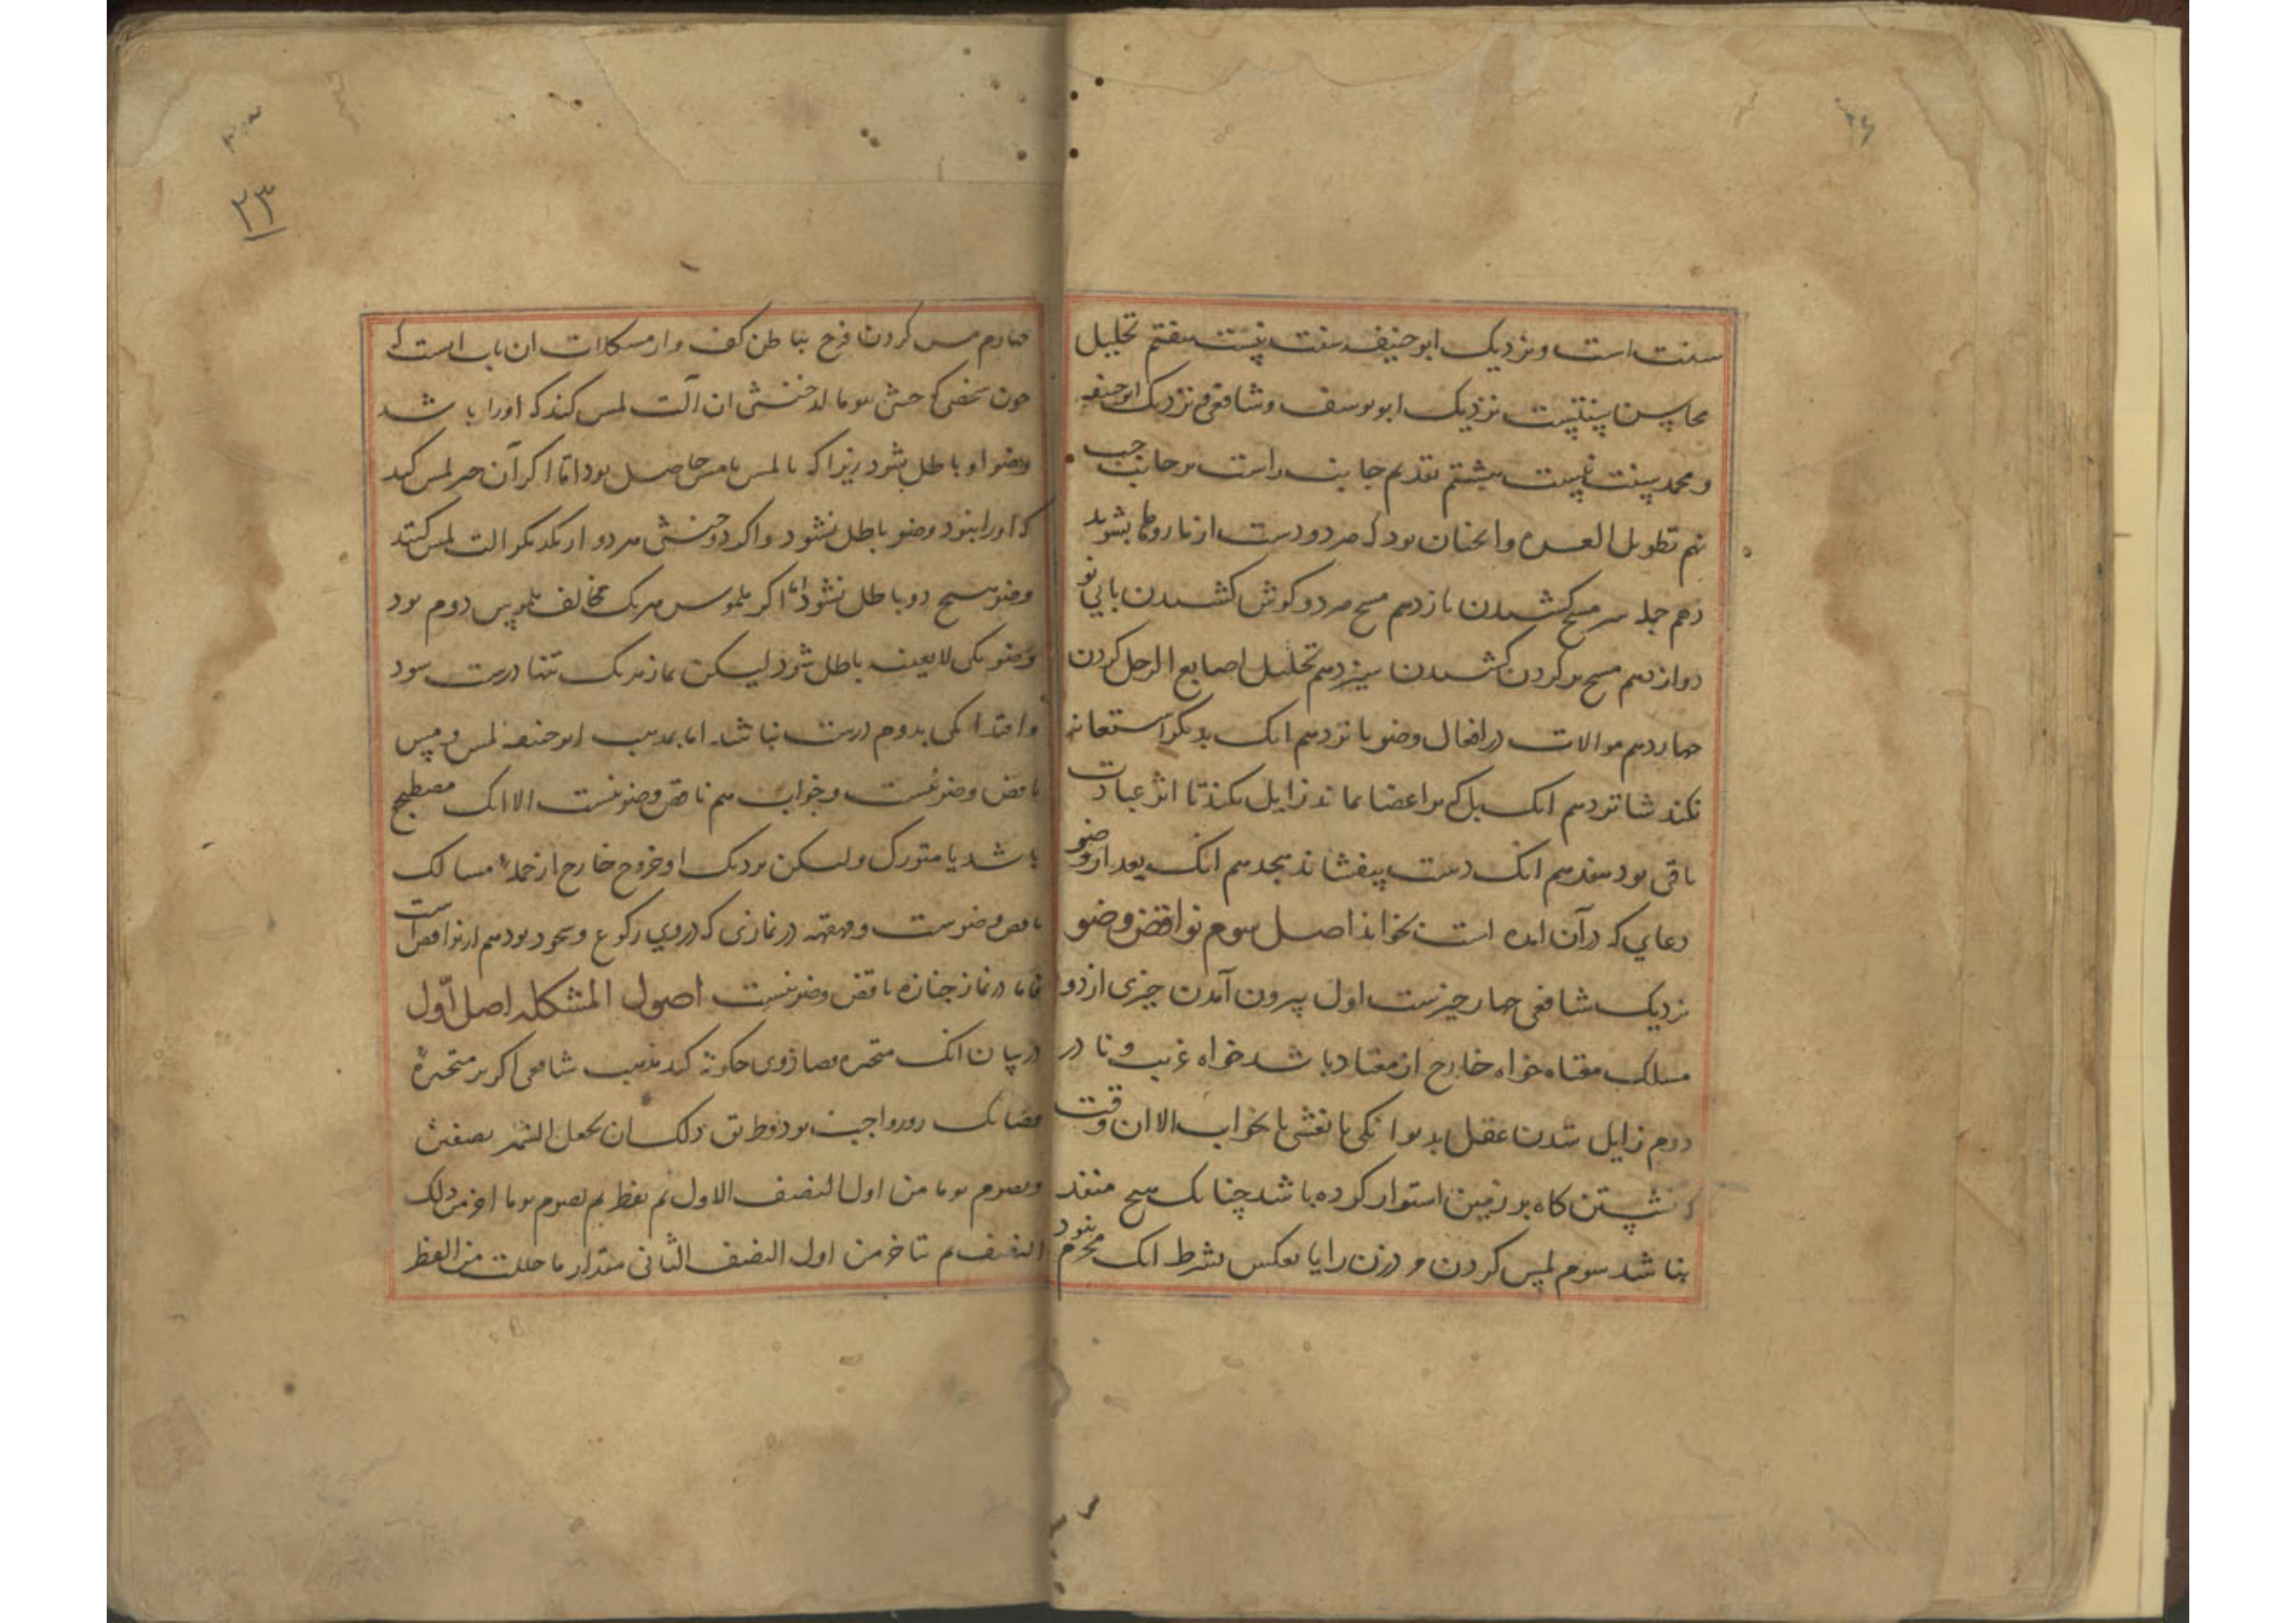 سنت است و نزدیک ابو حنیفه سنت نیست هفتم تخلیل
محاسن سنتست نزدیک ابو یوسف و شافعی و نزدیک ابو حنیفه
و محمد سنت نیست هشتم تقدیم جانب راست بر جانب چپ
نهم تطویل الغره و انچنان بود که هر دو دست از بازو بشوید
دهم جمله سر مسح کشیدن یازدهم مسح هر دو کوش کشیدن بابی نو
دوازدهم مسح بر کردن کشیدن سیزدهم تخلیل اصابع الرجل کردن
چهاردهم موالات در افعال وضو پانزدهم انک بدیکر استعانه
نکند شانزدهم انک بلل که بر اعضا بماند زایل نکند تا اثر عبادت
باقی بود هفدهم انک دست بیفشاند هجدهم انک بعد از وضو
دعایی که در آن امده است بخواند اصل سوم نواقض وضو
نزدیک شافعی چهار چیزست اول بیرون آمدن چیزی از دو
مسلک معتاد خواه خارج از معتاد باشد خواه غریب و نادر
دوم زایل شدن عقل بدیوانکی یا بغشی یا بخواب الا ان وقت
که نشستن کاه بر زمین استوار کرده باشد چنانک هیچ منفذ
نباشد سوم لمس کردن مرد زن را یا بعکس بشرط انک محرم نبود
۲۳
چهارم مس کردن فرج بباطن کف و از مشکلات ان باب انست که
چون شخصی که خنثی بود اما از خنثی ان آلت لمس کند که او را باشد
وضو او باطل بشود زیرا که یا لمس یا مس حاصل بود اما اکر آن چیز لمس کند
که او را نبود وضو باطل نشود و اکر دو خنثی هر دو از یکدیکر الت لمس کنند
وضو هیچ دو باطل نشود اما اکر ملموس هر یک مخالف ملموس دوم بود
وضو یکی لا بعینه باطل شود لیکن نماز هر یک تنها درست بود
و اقتدا یکی بدوم درست نباشد اما بمذهب ابو حنیفه لمس و مس
ناقض وضو نیست و خواب هم ناقض وضو نیست الا انک مضطجع
باشد یا متورک و لیکن نزدیک او خروج خارج از جمله مسالک
ناقض وضوست و قهقهه در نمازی که در وی رکوع و سجود بود هم از نواقض است
اما در نماز جنازه ناقض وضو نیست اصول المشکله اصل اول
در بیان انک متحیره قضا روزه چکونه کند بمذهب شافعی اکر بر متحیره
قضا یک روز واجب بود فطریق ذلک ان یجعل الشهر نصفین
و یصوم یوما من اول النصف الاول ثم یفطر ثم یصوم یوما اخر من ذلک
النصف ثم تتاخر من اول النصف الثانی مقدار ما خللت من الفطر